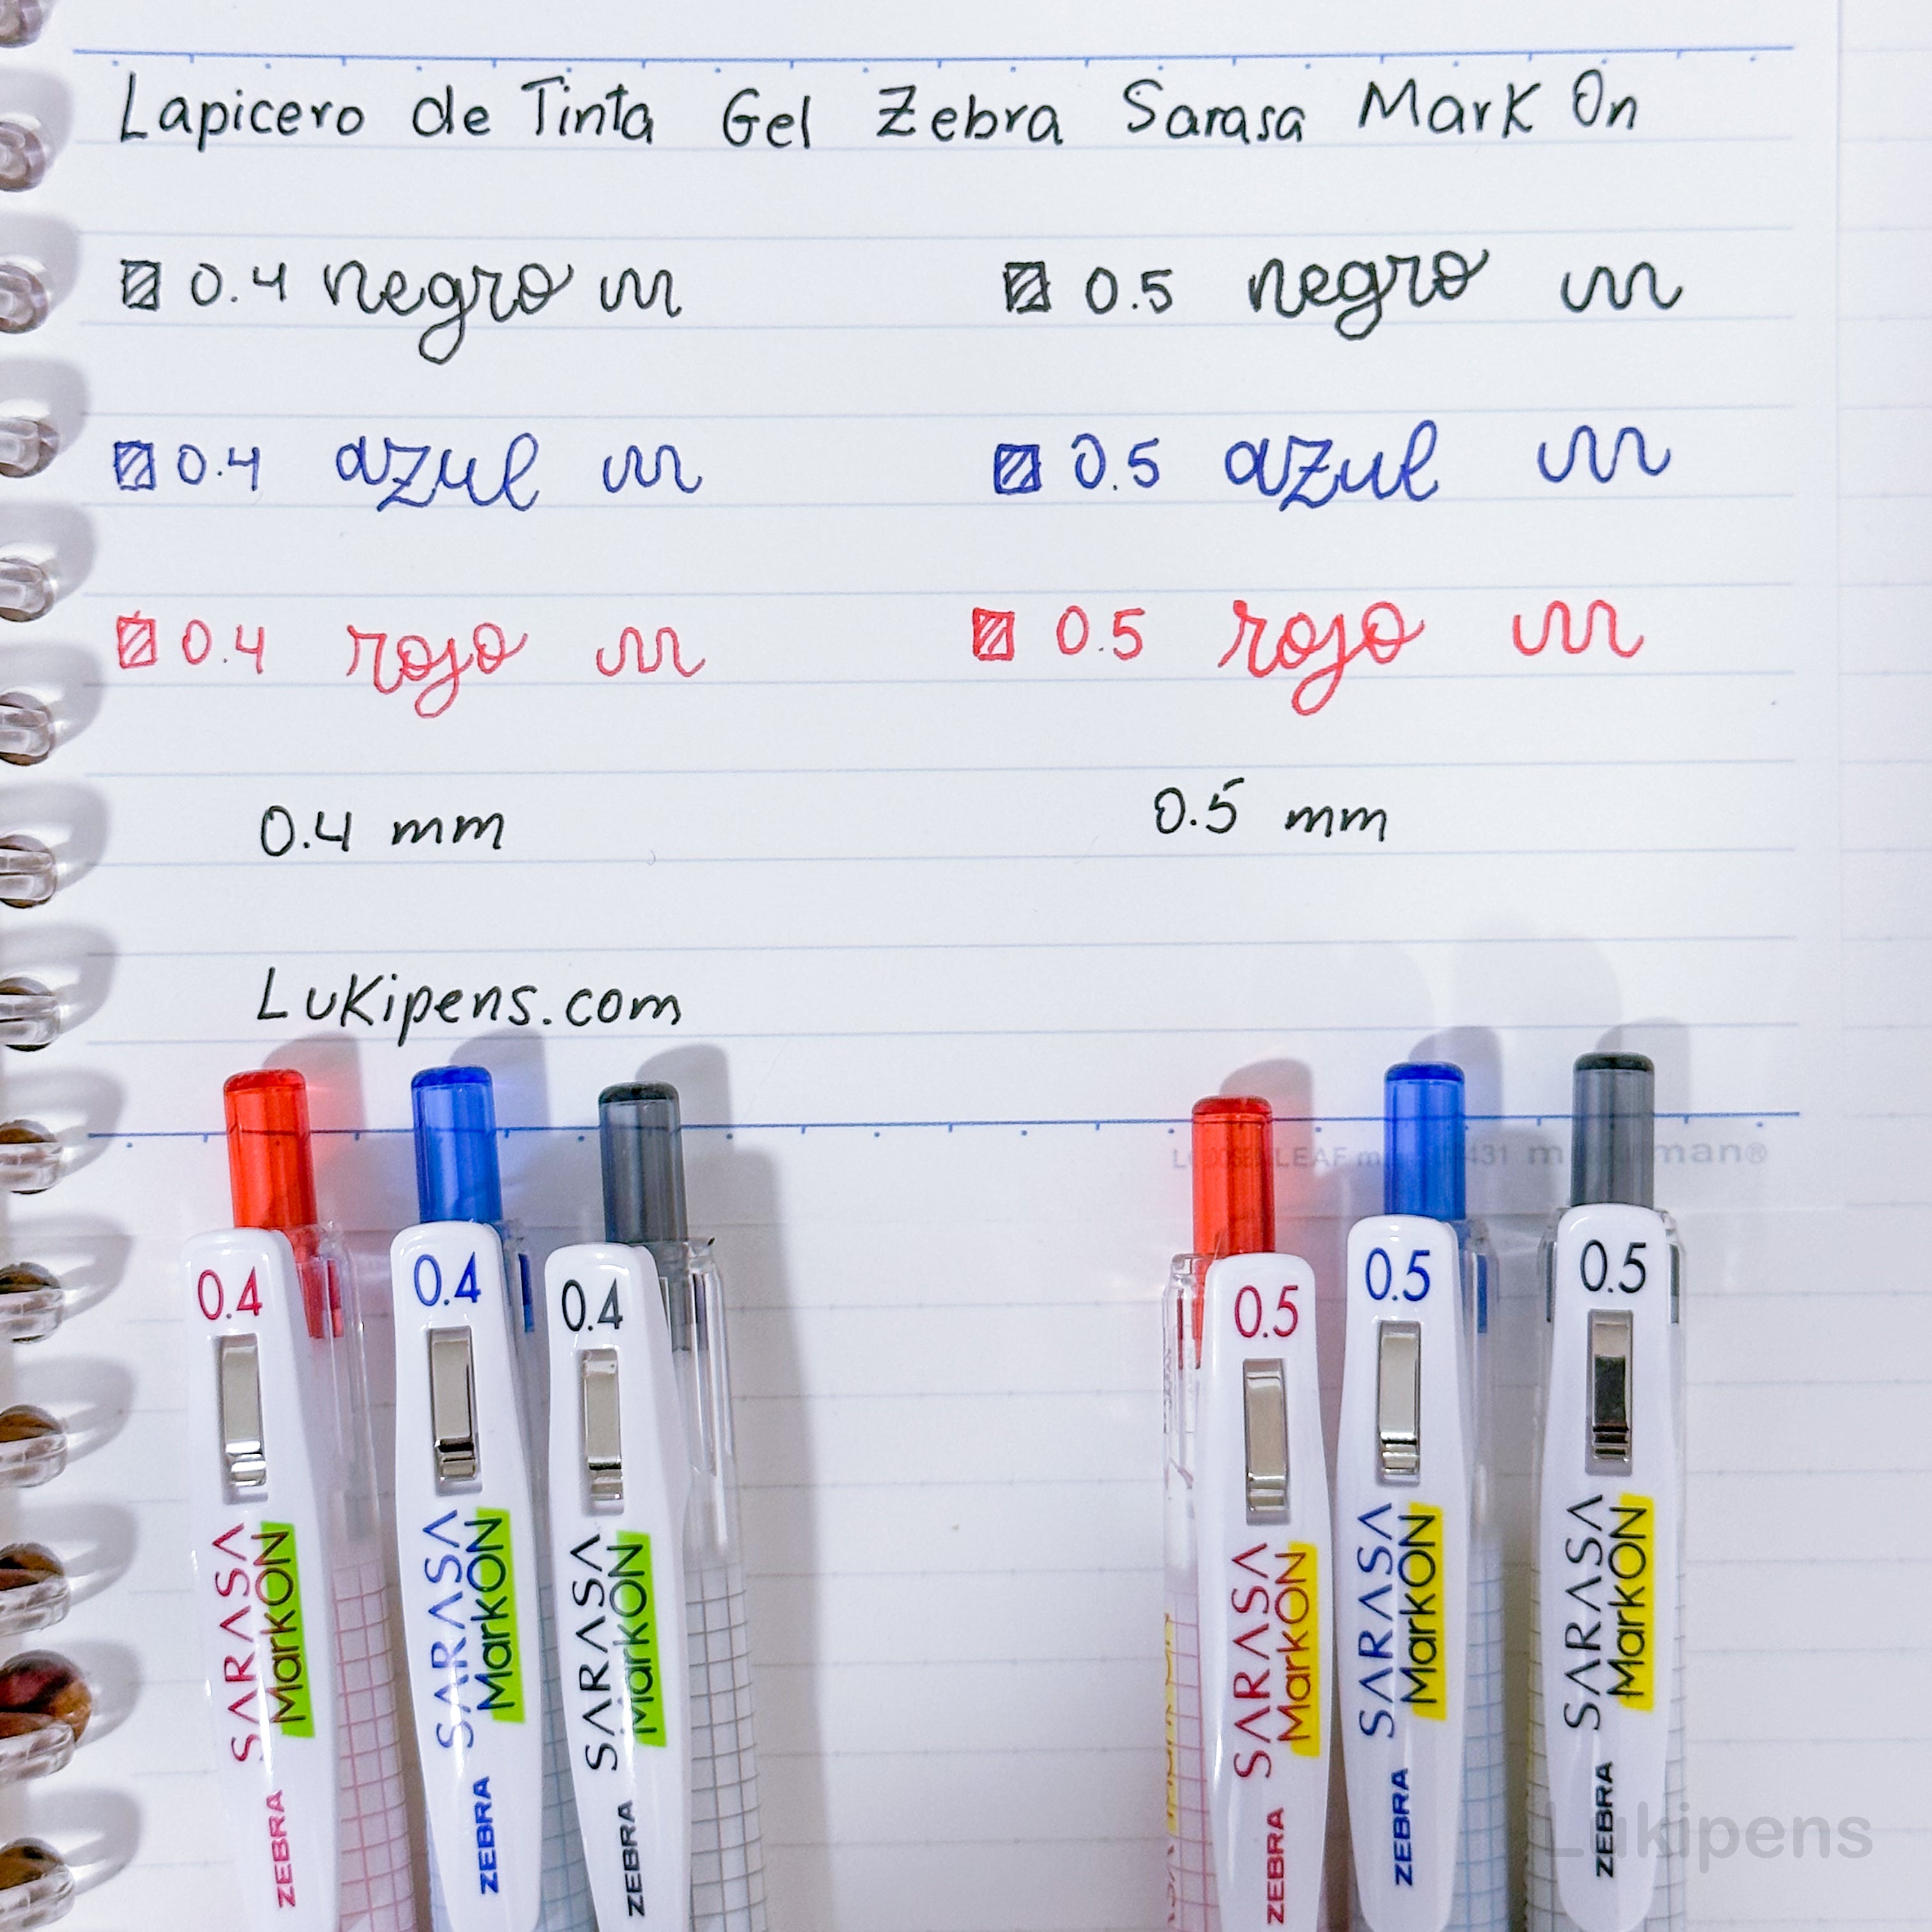 Lapicero de Tinta Gel Zebra Sarasa Mark On
0.4 negro 0.5 negro
0.4 azul 0.5 azul
0.4 rojo 0.5 rojo
0.4 mm 0.5 mm
Lukipens.com
0.4 SARASA MarkON ZEBRA
0.4 SARASA MarkON ZEBRA
0.4 SARASA MarkON ZEBRA
0.5 SARASA MarkON ZEBRA
0.5 SARASA MarkON ZEBRA
0.5 SARASA MarkON ZEBRA
Lukipens